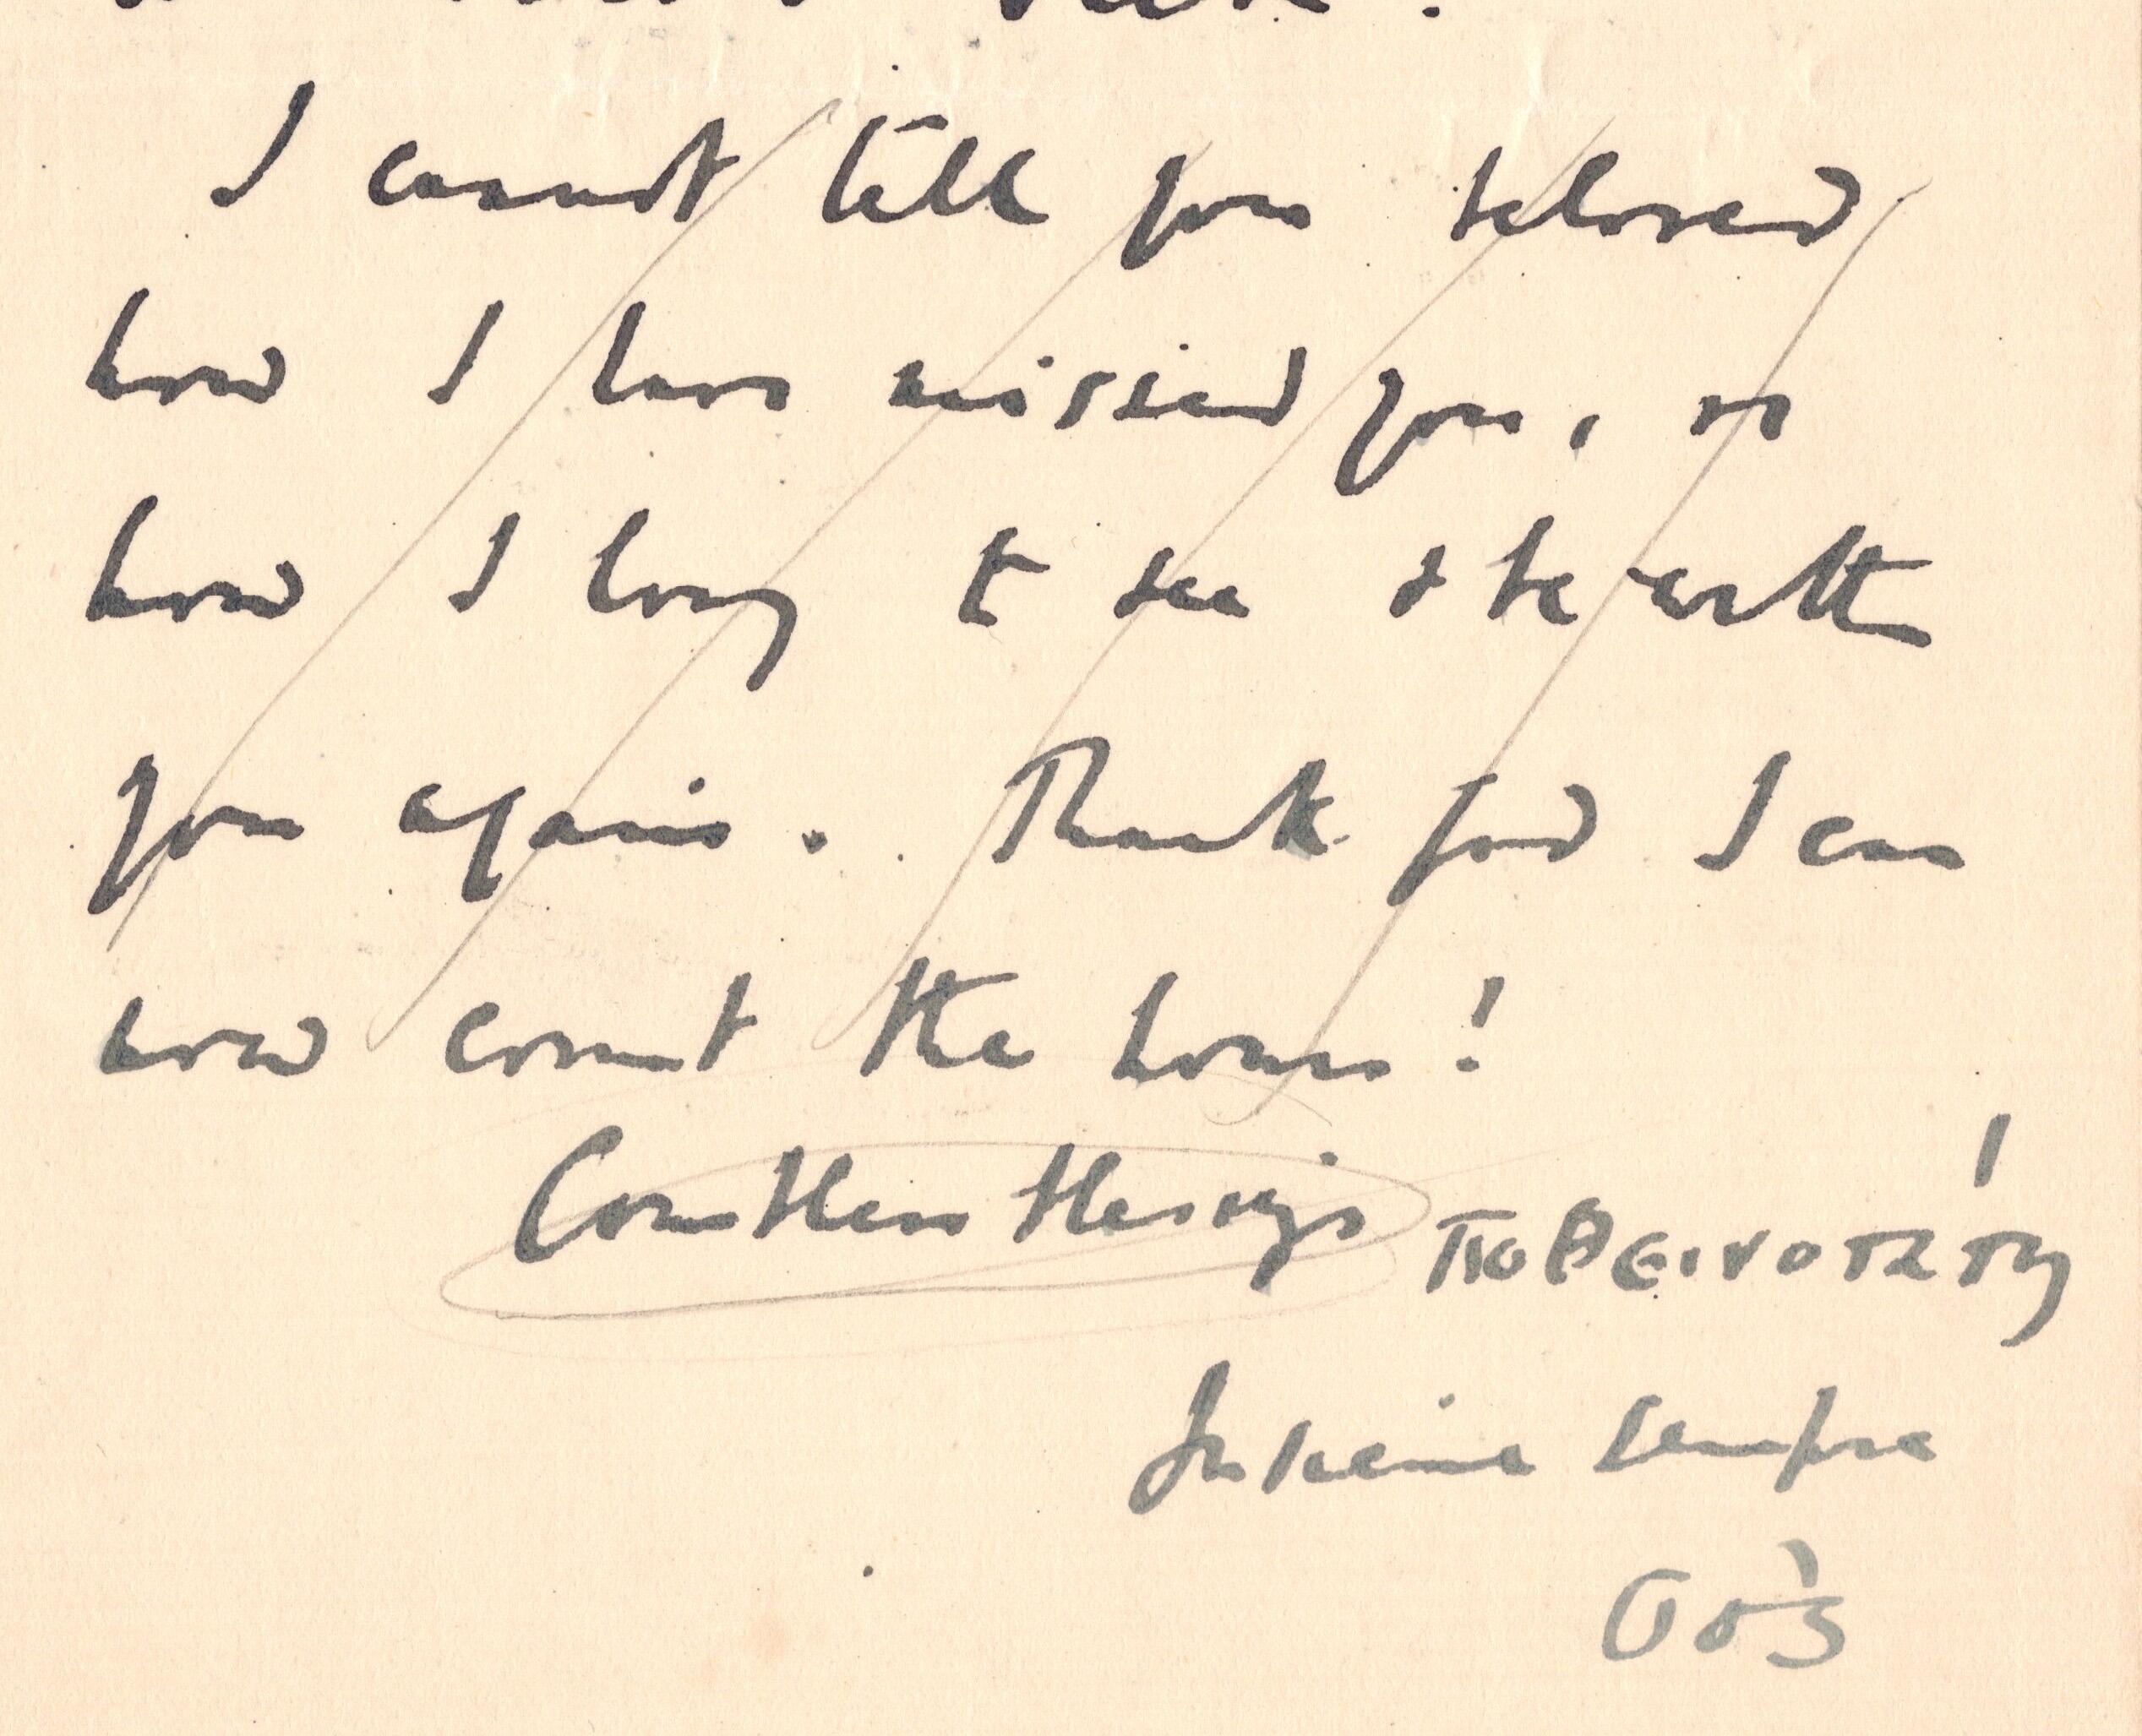 I cannot tell you beloved
how I have missed you, or
how I long to see & be with
you again. Thank God I can
now count the hours!
Countless blessings ποθεινοτάτη
Insieme sempre
σὸς